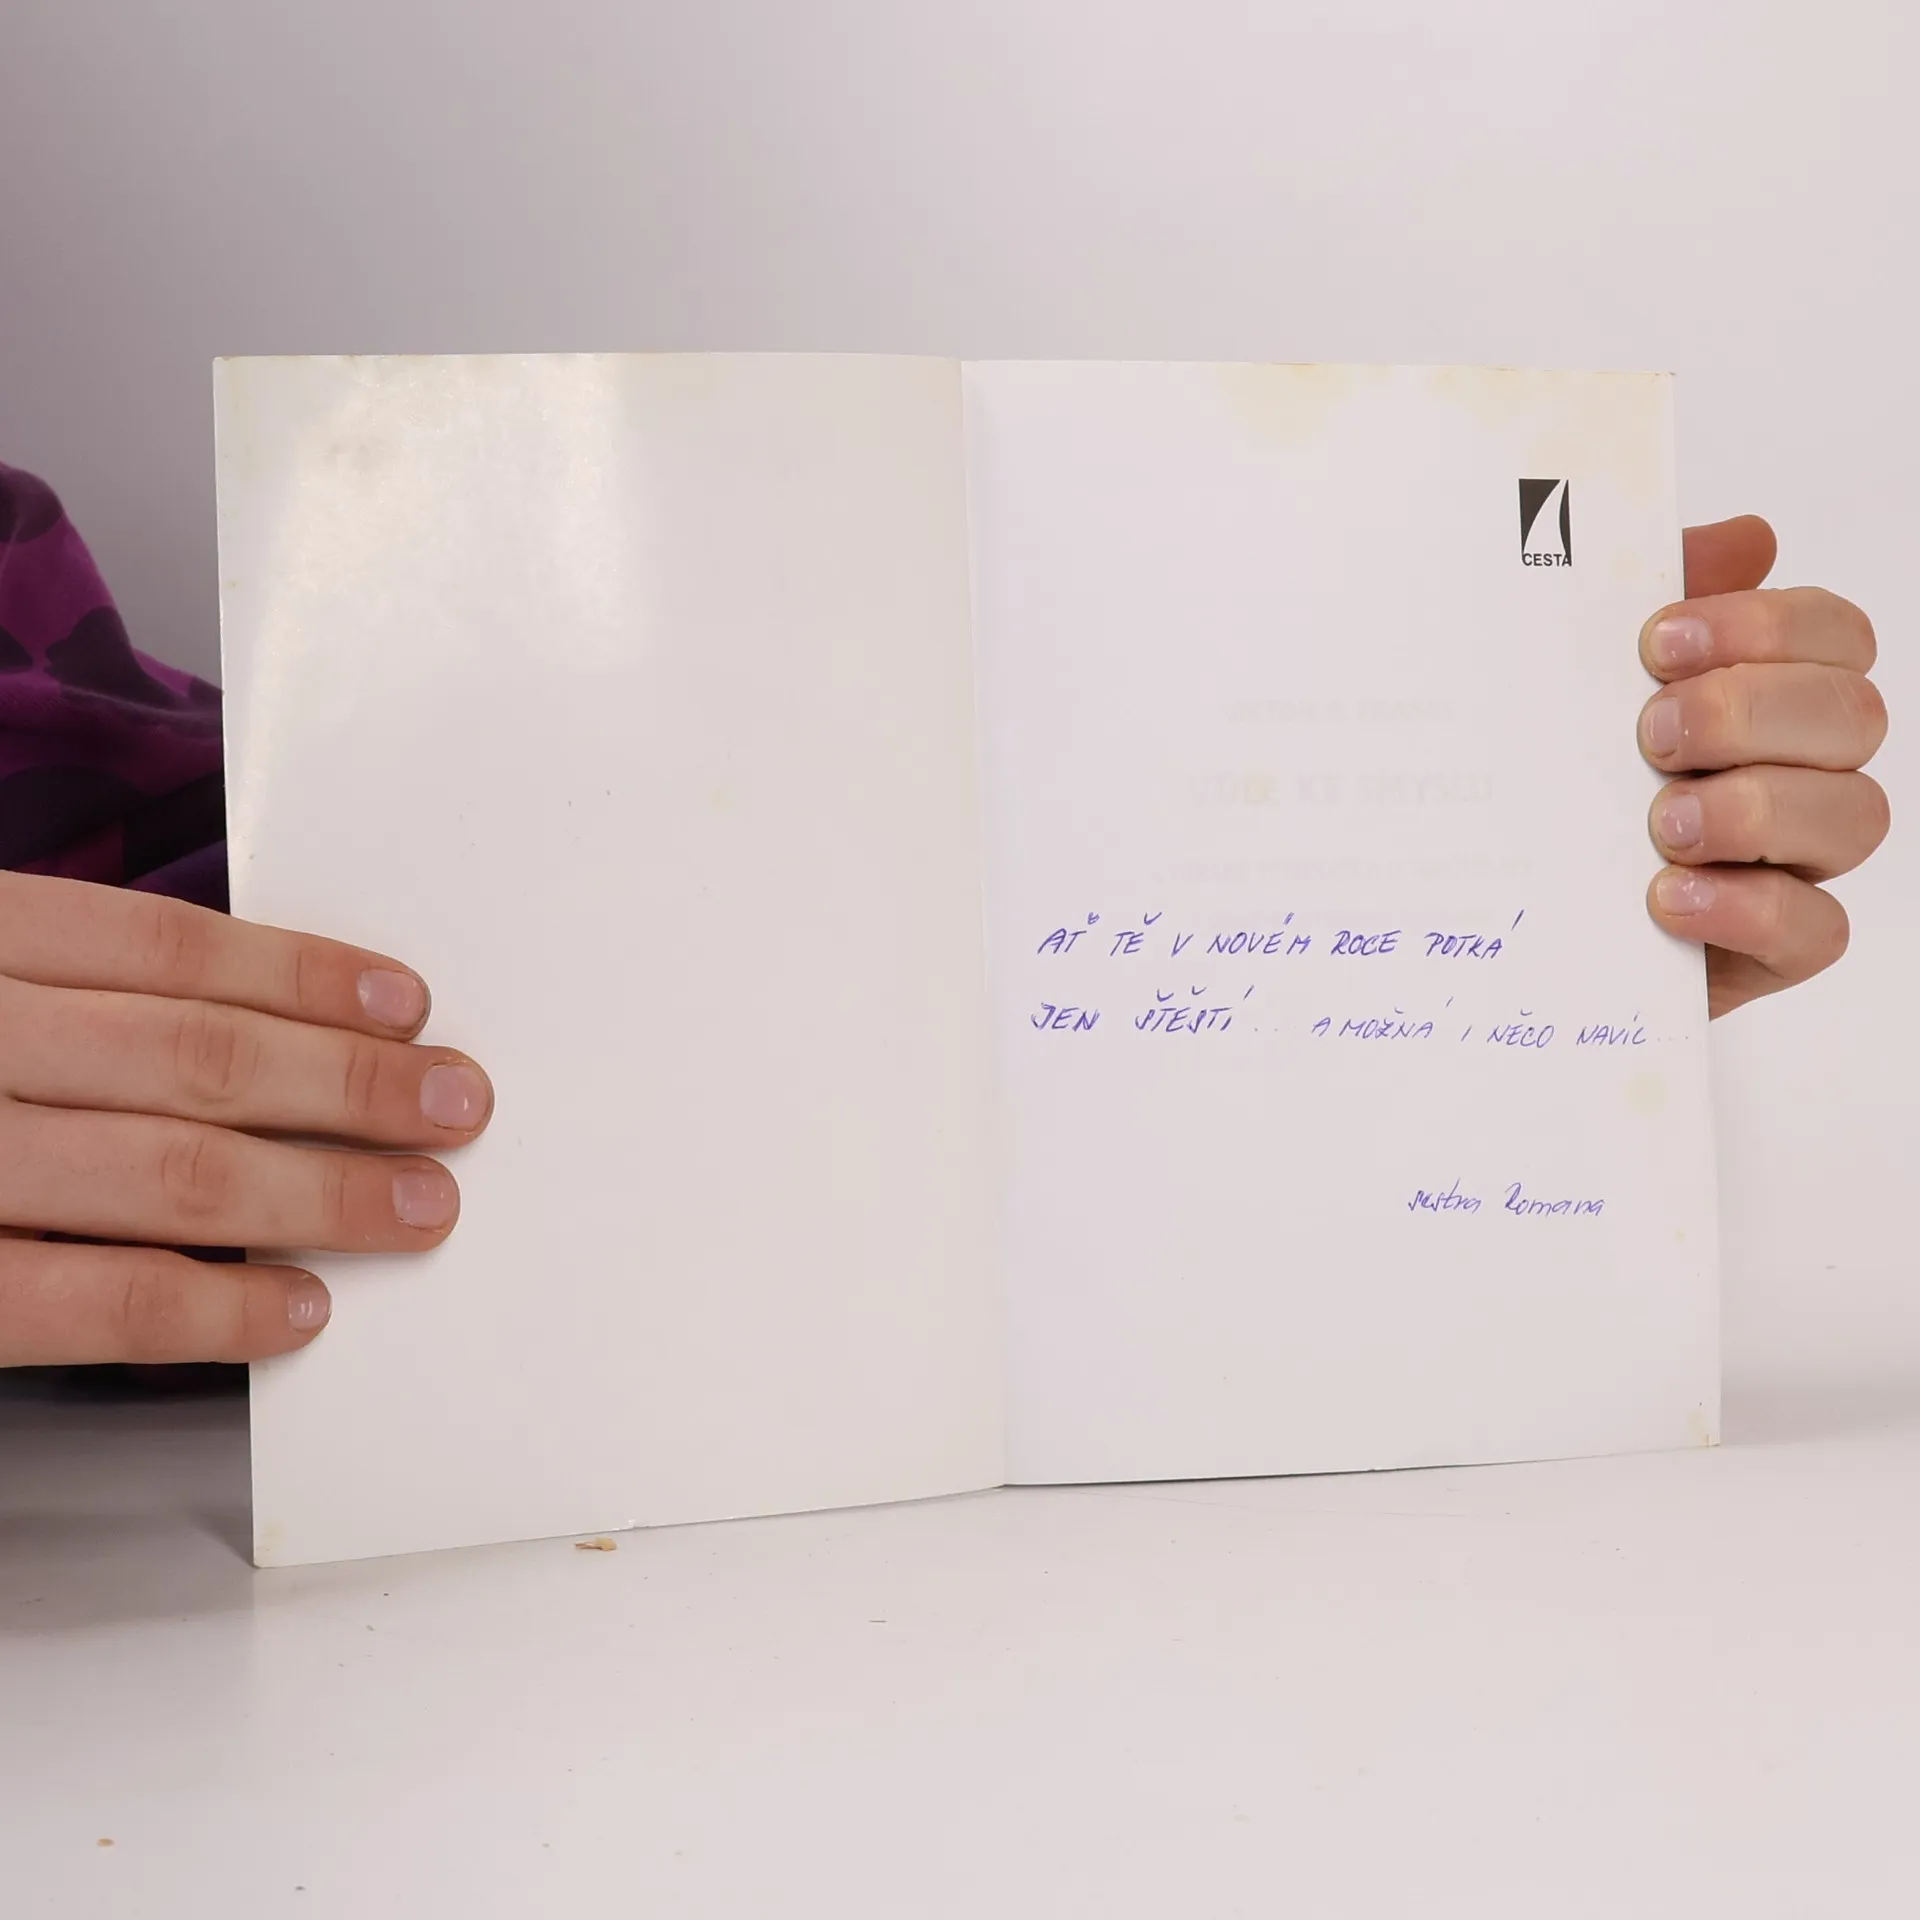 CESTA
AŤ TĚ V NOVÉM ROCE POTKÁ
JEN ŠTĚSTÍ... A MOŽNÁ I NĚCO NAVÍC...
sestra Romana